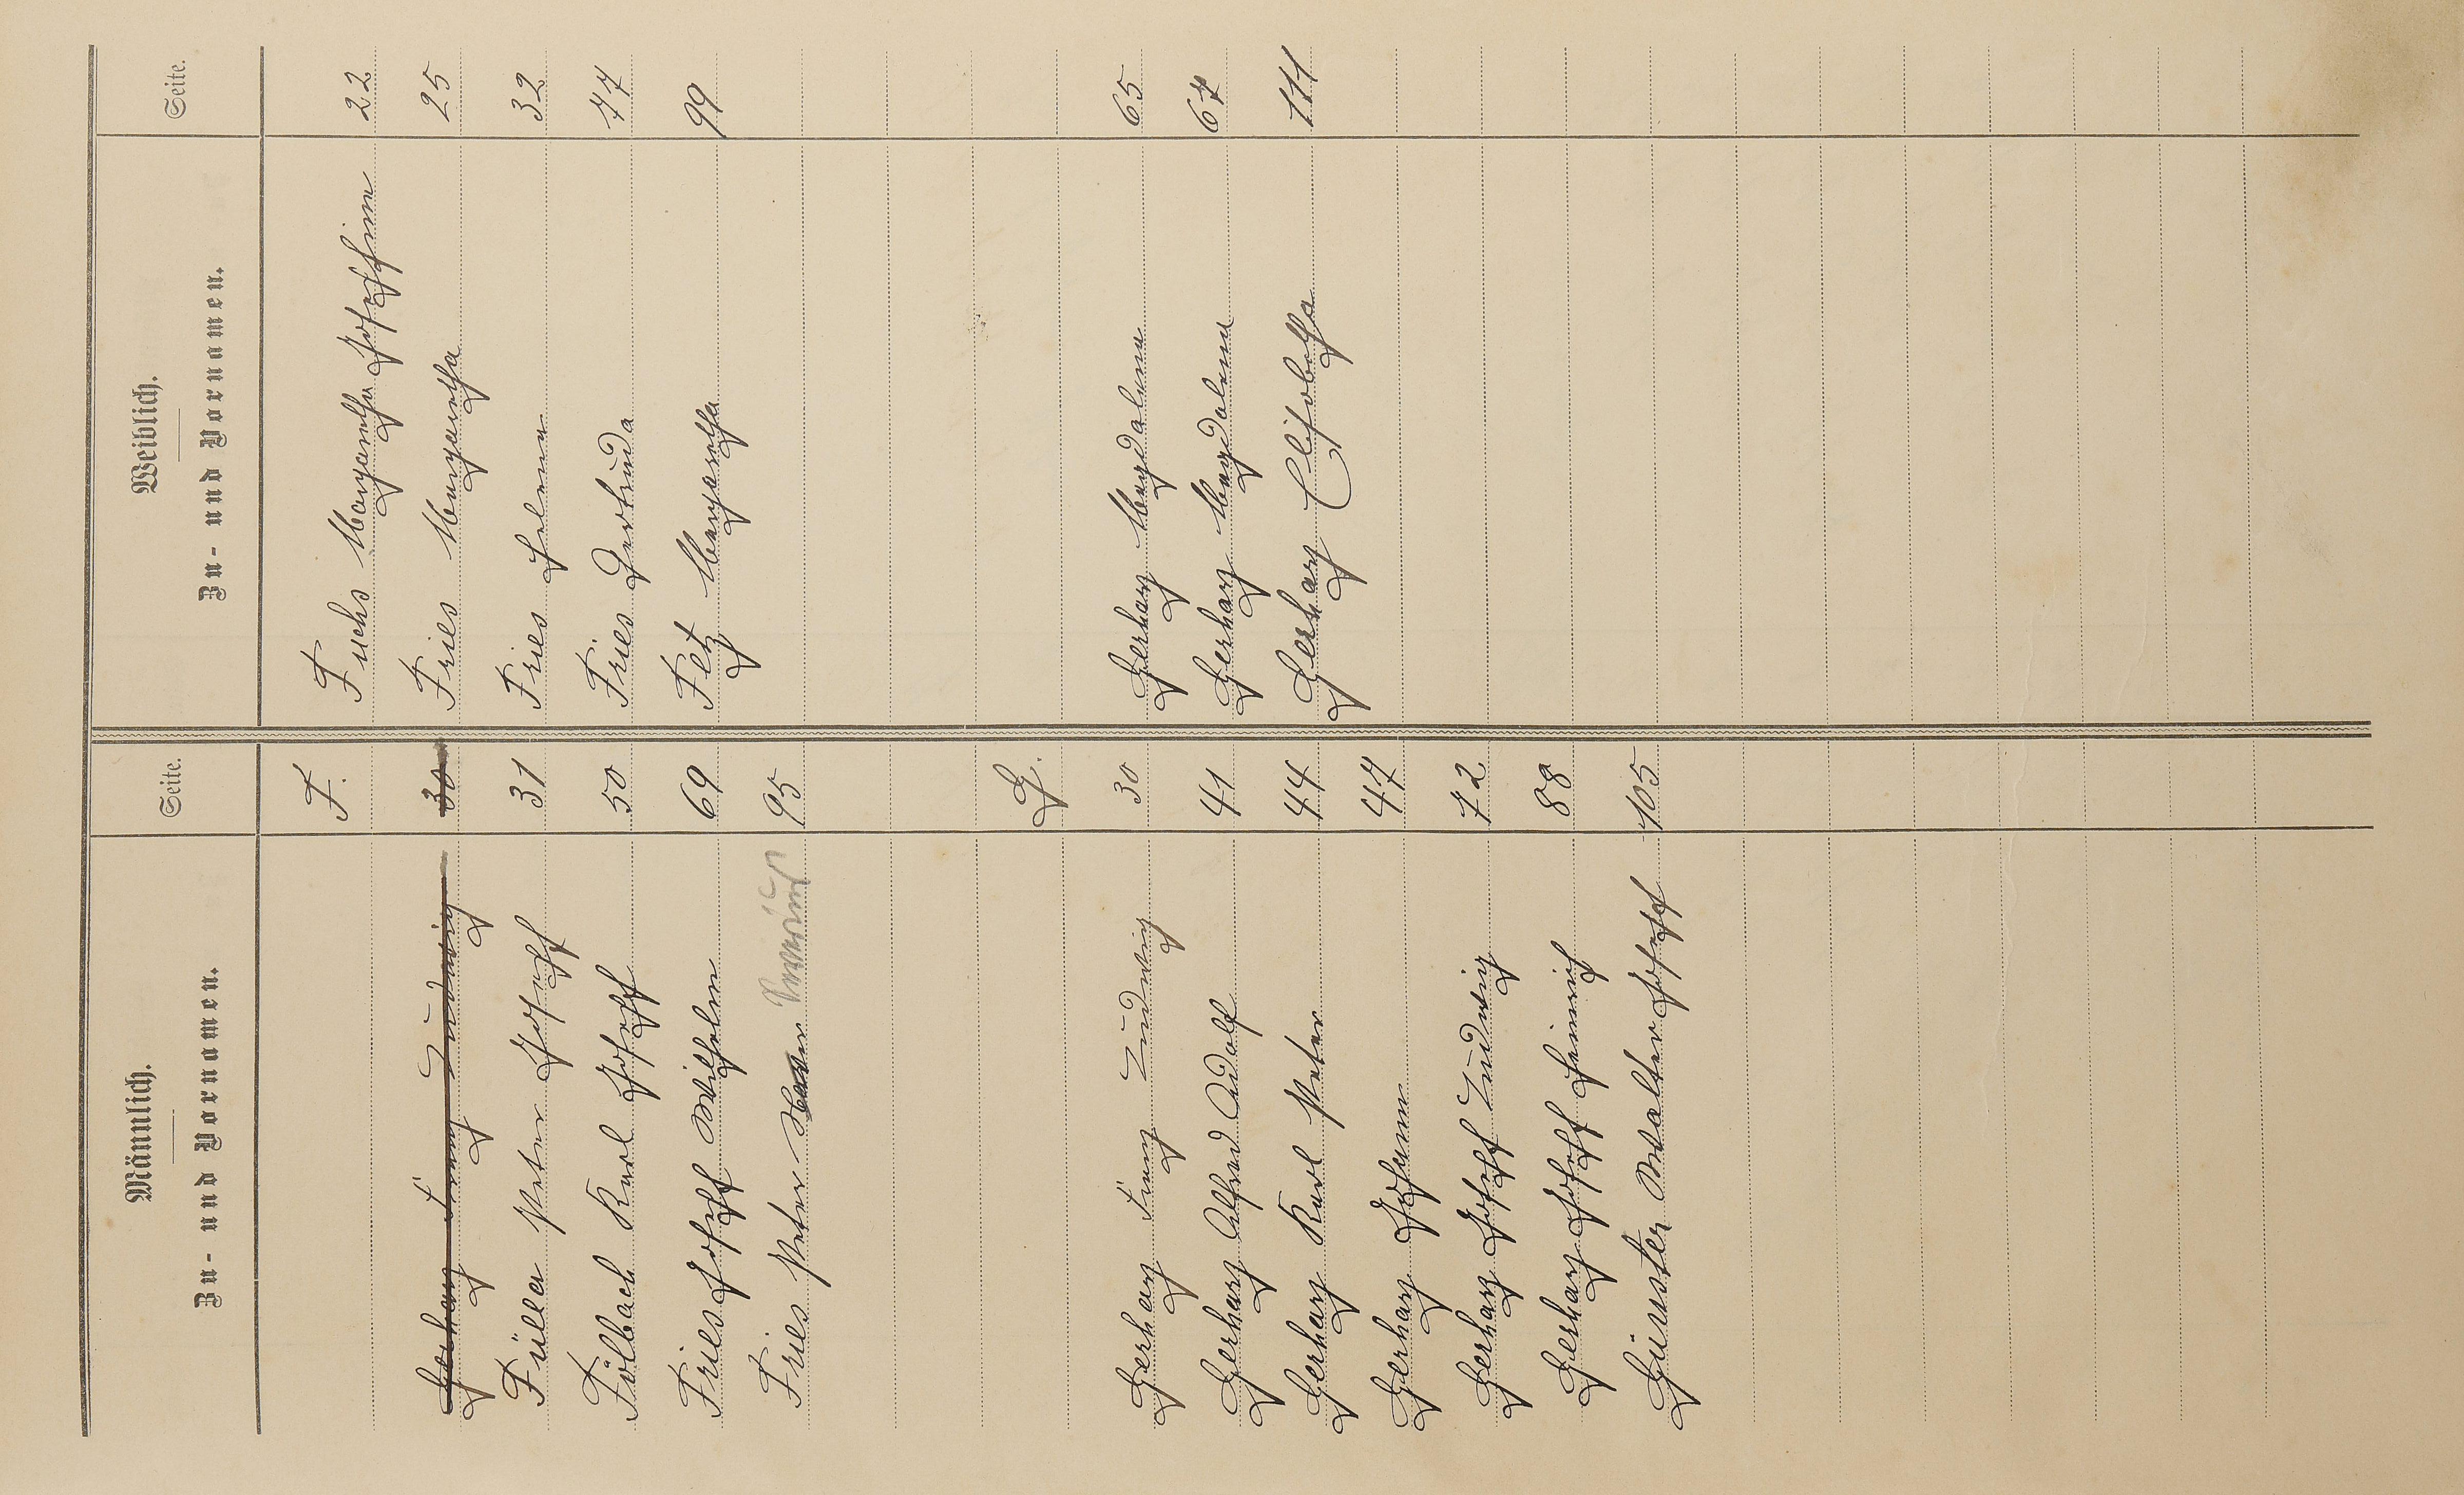 Männlich.
Zu- und Vornamen.
Seite.
Weiblich.
Zu- und Vornamen.
Seite.
F.
Fuchs Margaretha Josephine 22
Gerharz Franz Ludwig 30
Fries Margaretha 25
Füller Peter Joseph 31
Fries Helena 32
Fölbach Karl Joseph 50
Fries Gertruda 77
Fries Joseph Wilhelm 69
Fetz Margaretha 99
Fries Peter 95
G.
Gerharz Franz Ludwig 30
Gerharz Magdalena 65
Gerharz Alfred Adolf 41
Gerharz Magdalena 67
Gerharz Karl Peter 44
Gerharz Elisabetha 111
Gerharz Johann 47
Gerharz Joseph Ludwig 72
Gerharz Joseph Heinrich 88
Günster Walter Joseph 105